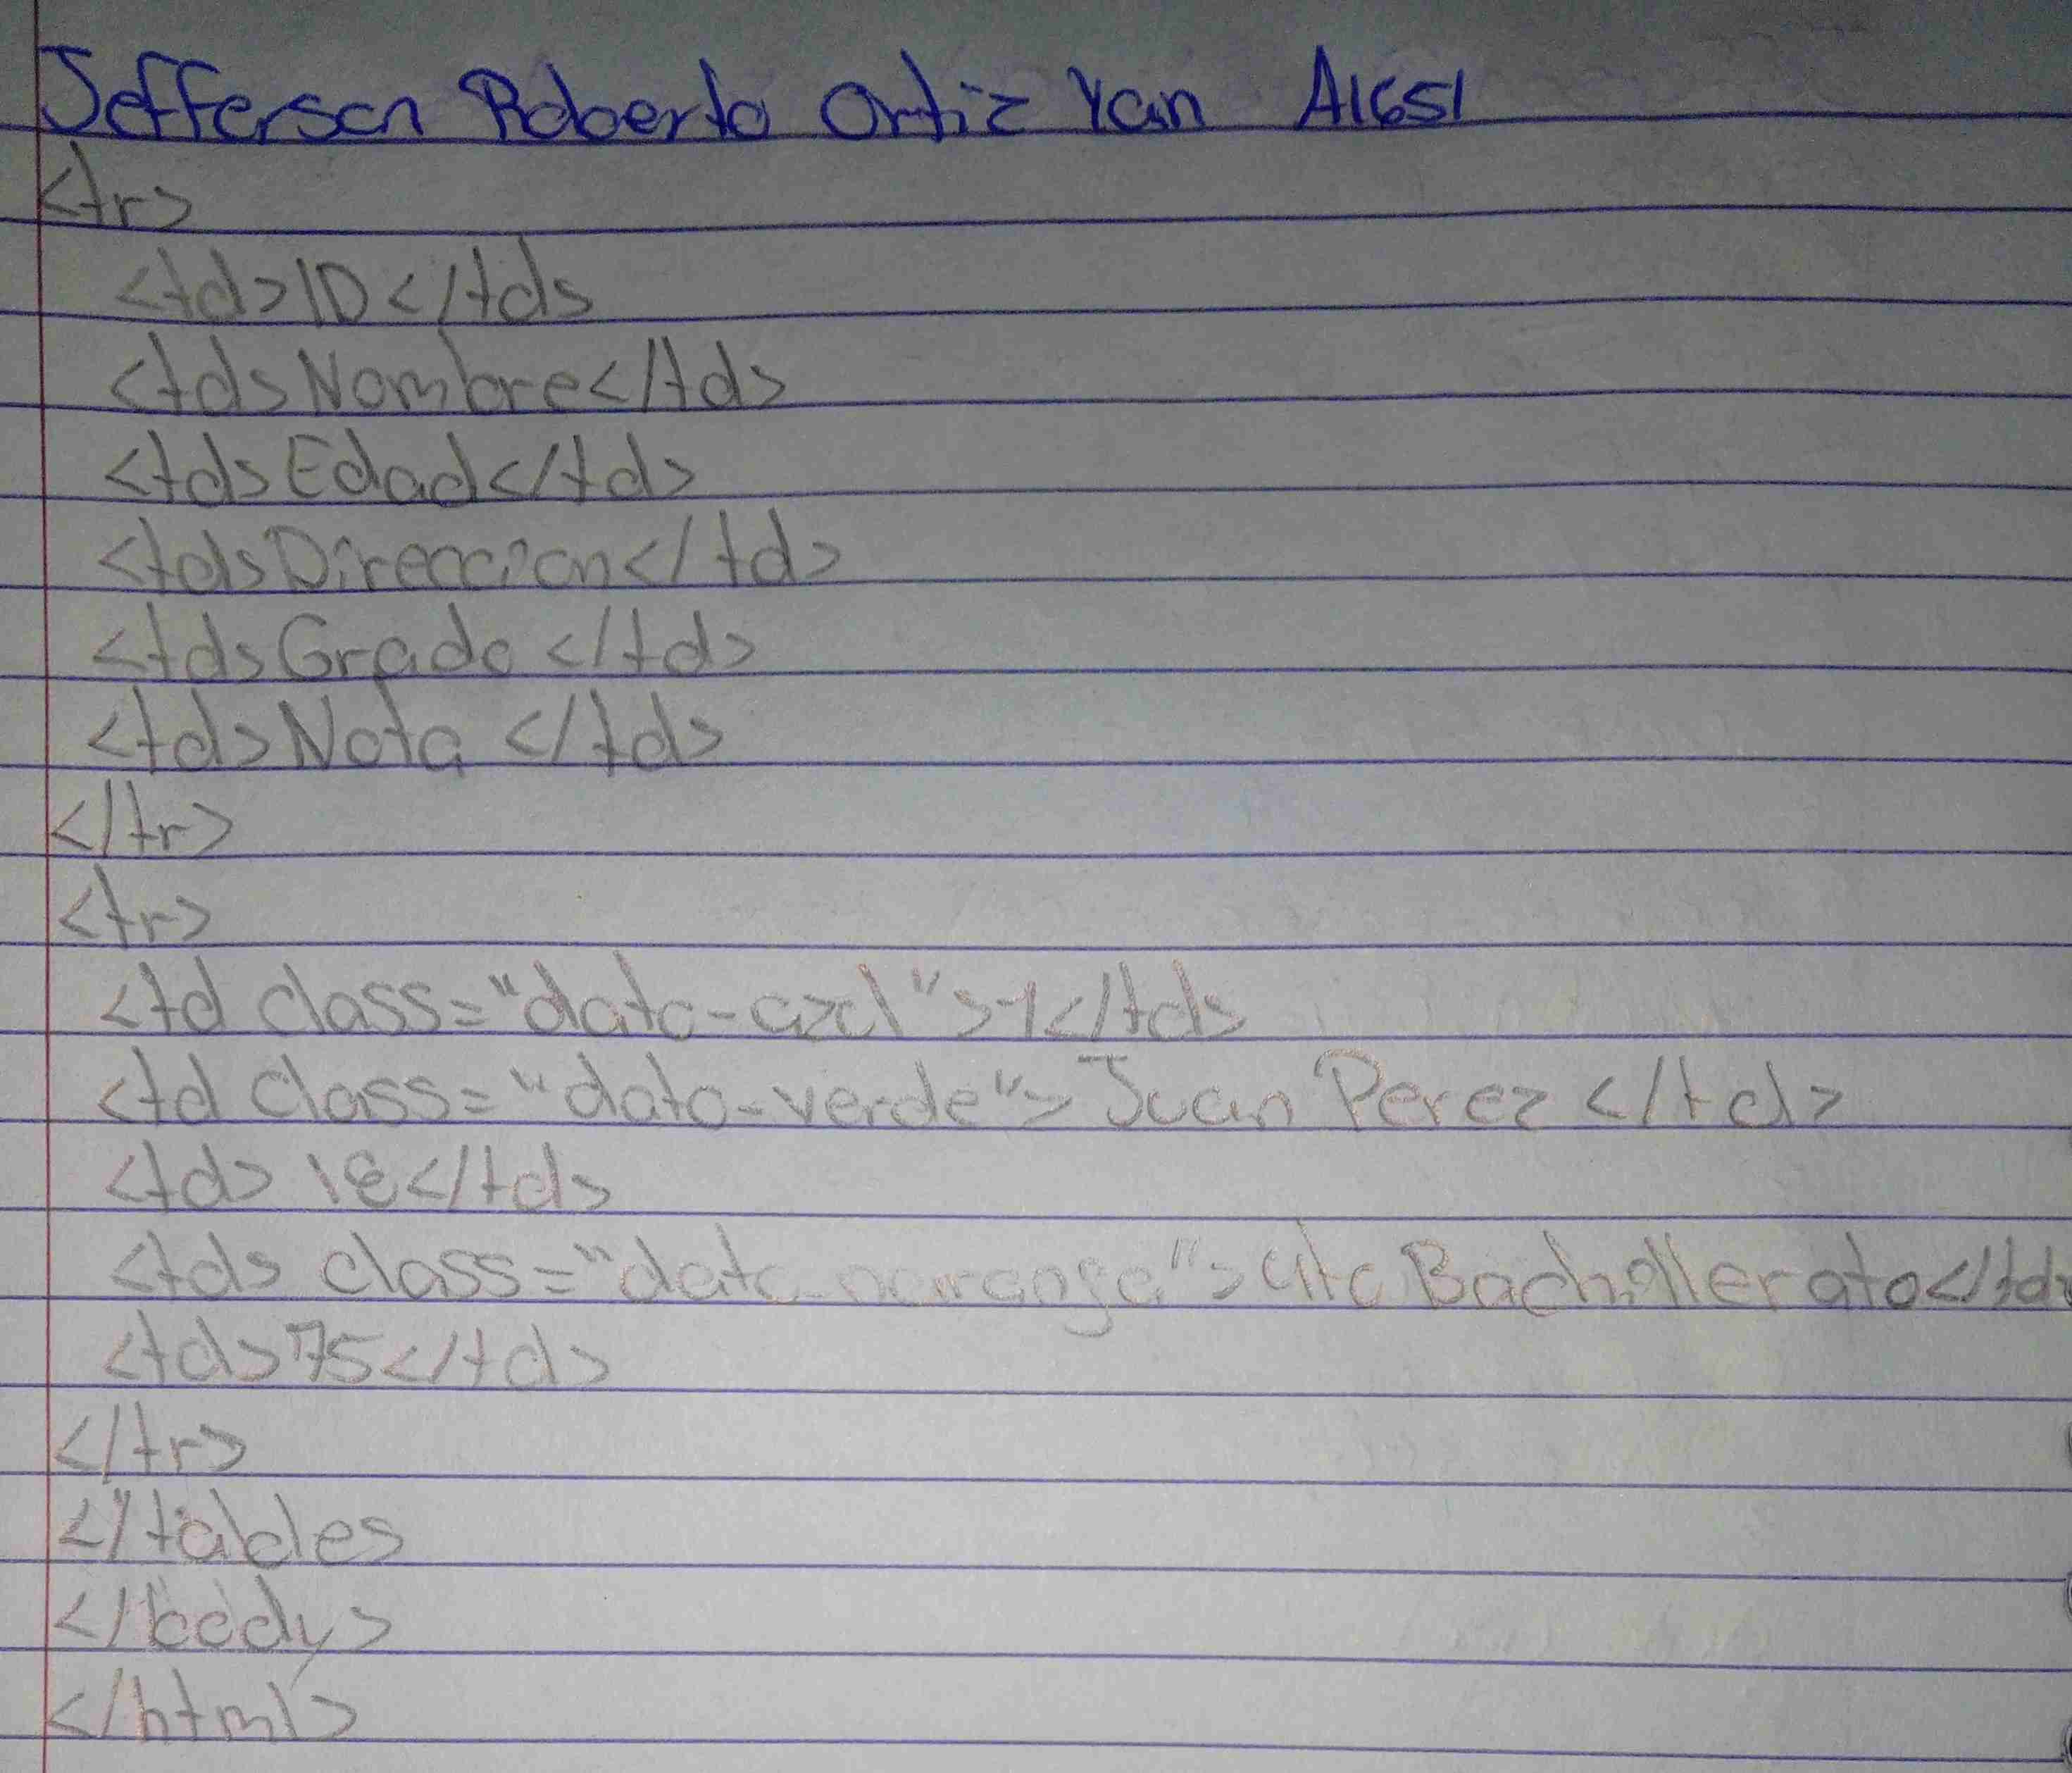 Jefferson Roberto Ortiz Yan A1651
<tr>
<td>ID</td>
<td>Nombre</td>
<td>Edad</td>
<td>Direccion</td>
<td>Grado </td>
<td>Nota </td>
</tr>
<tr>
<td class="dato-azul">1</td>
<td class="dato-verde">Juan Perez </td>
<td> 18</td>
<td> class="dato-naranja">4to Bachillerato</td>
<td>75</td>
</tr>
</table>
</body>
</html>